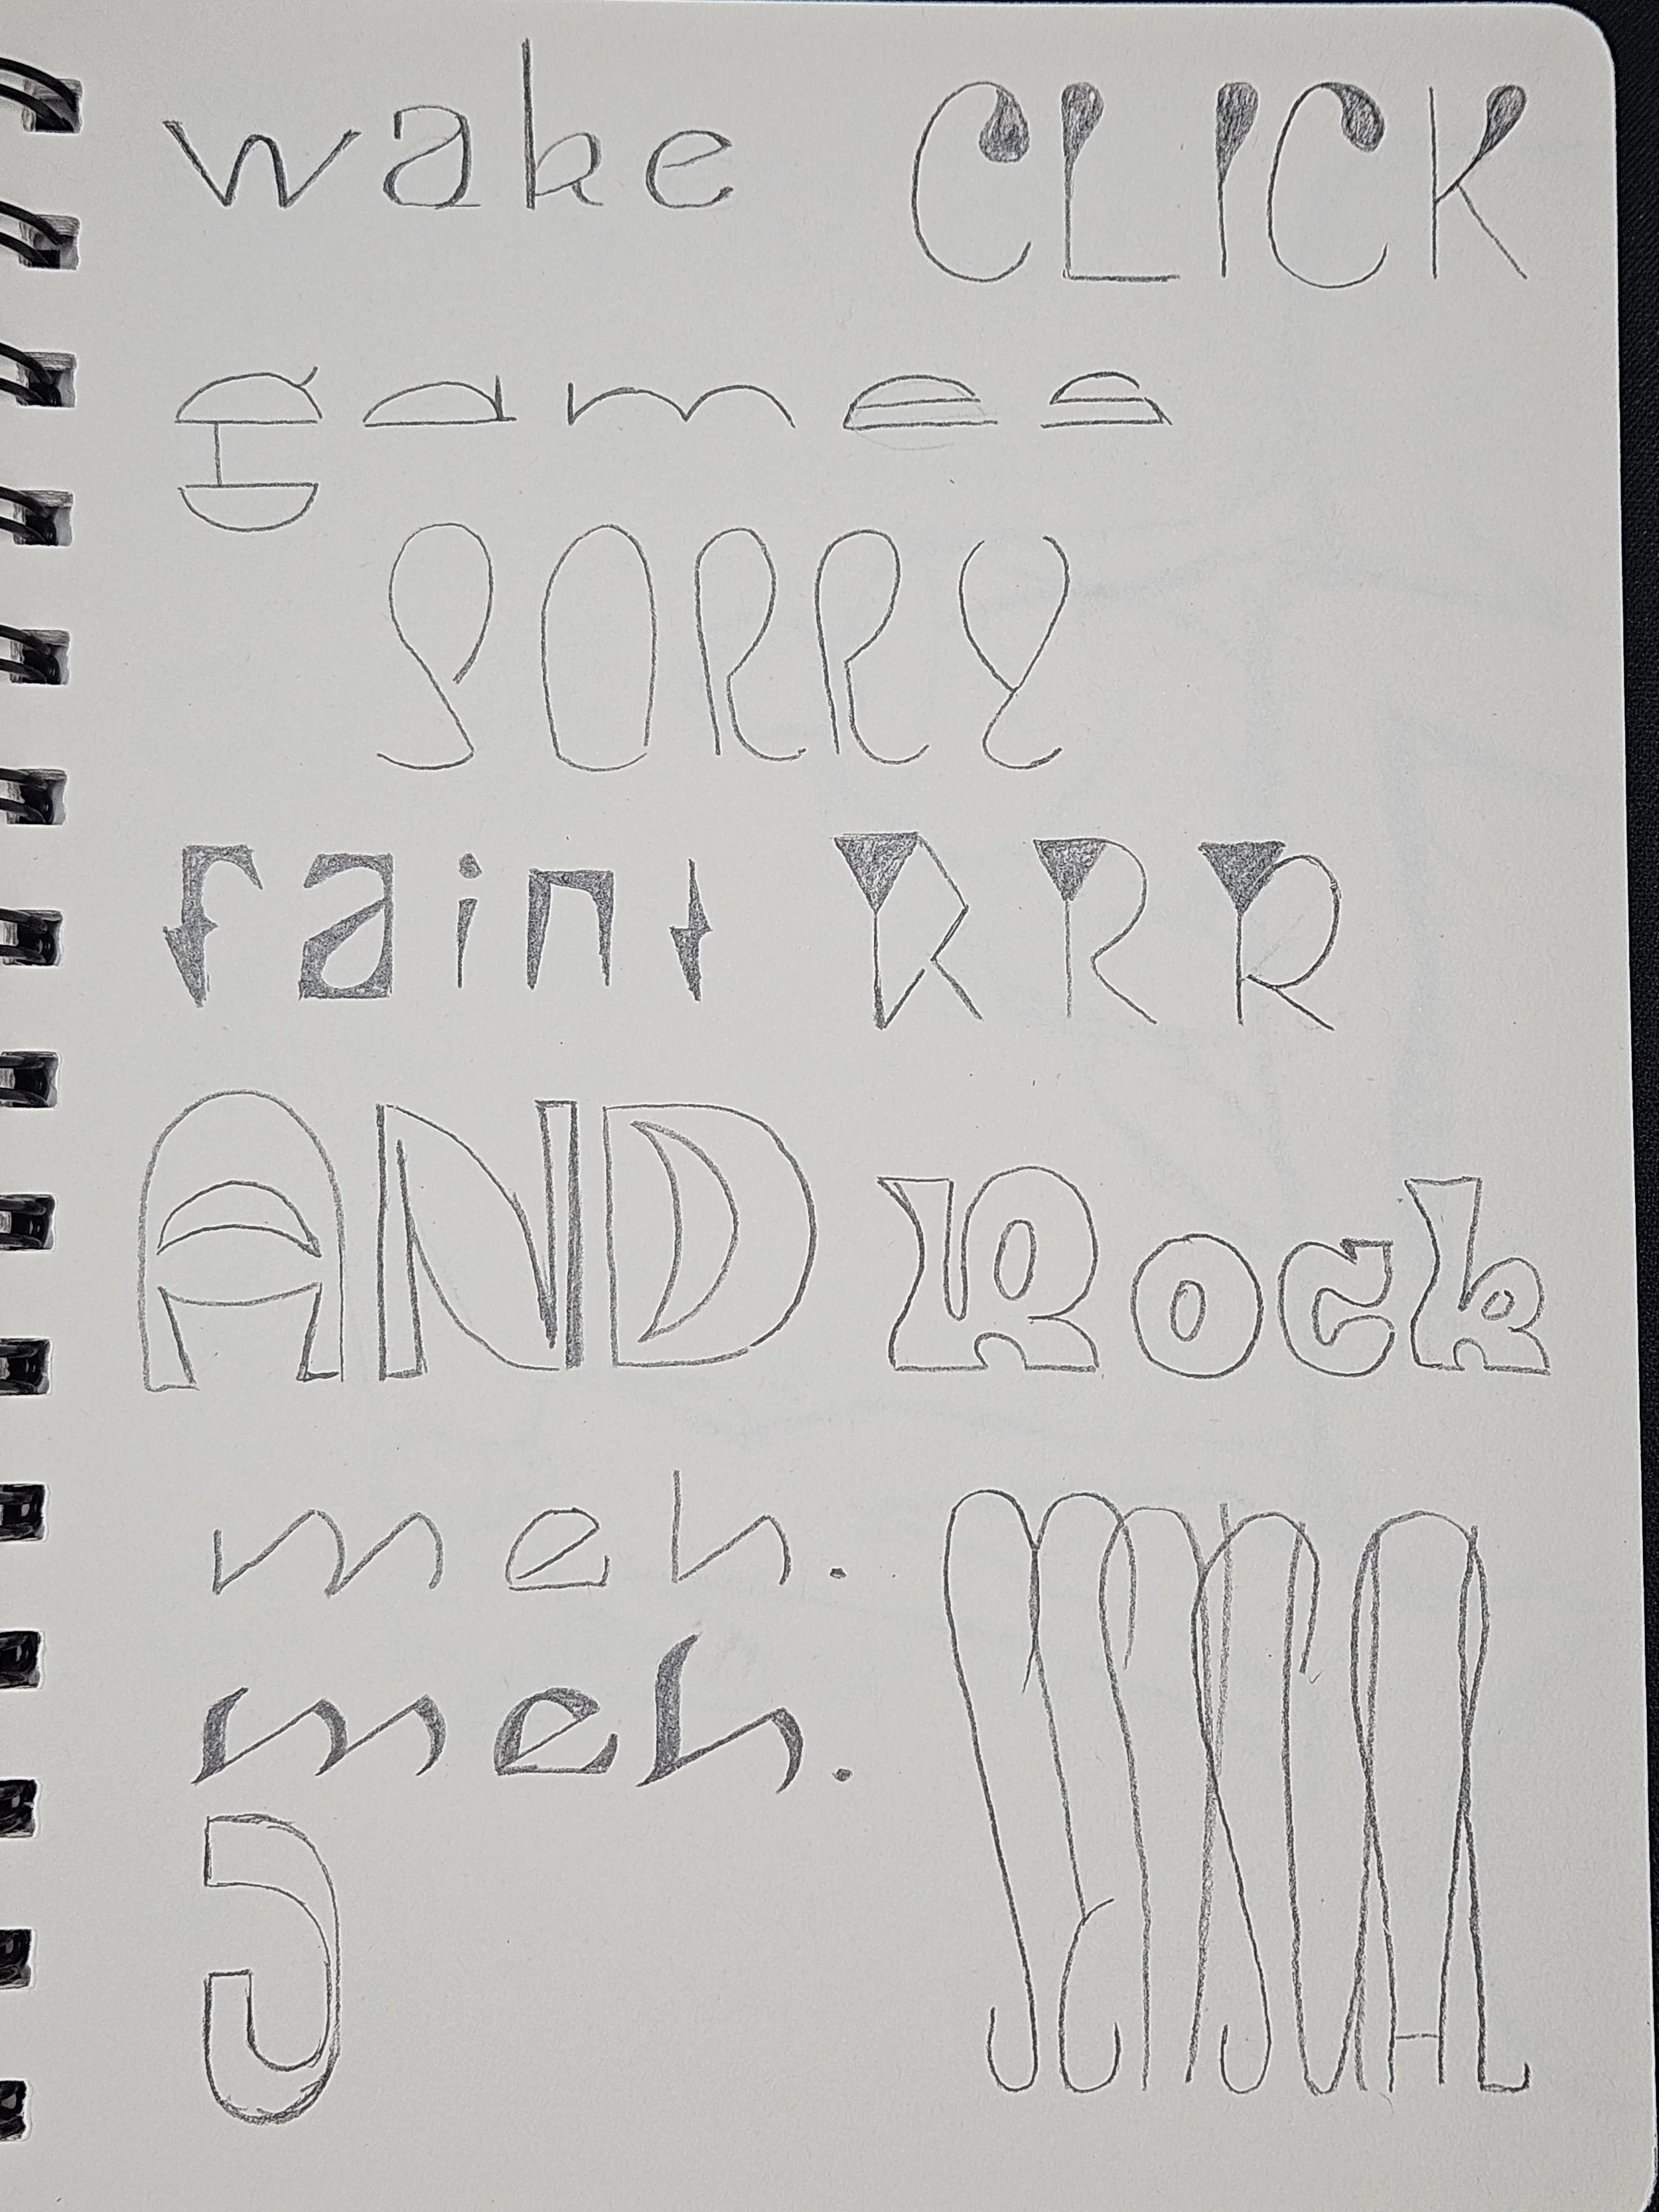 wake CLICK
games
SORRY
faint R R R
AND Rock
meh. SENSUAL
meh.
J